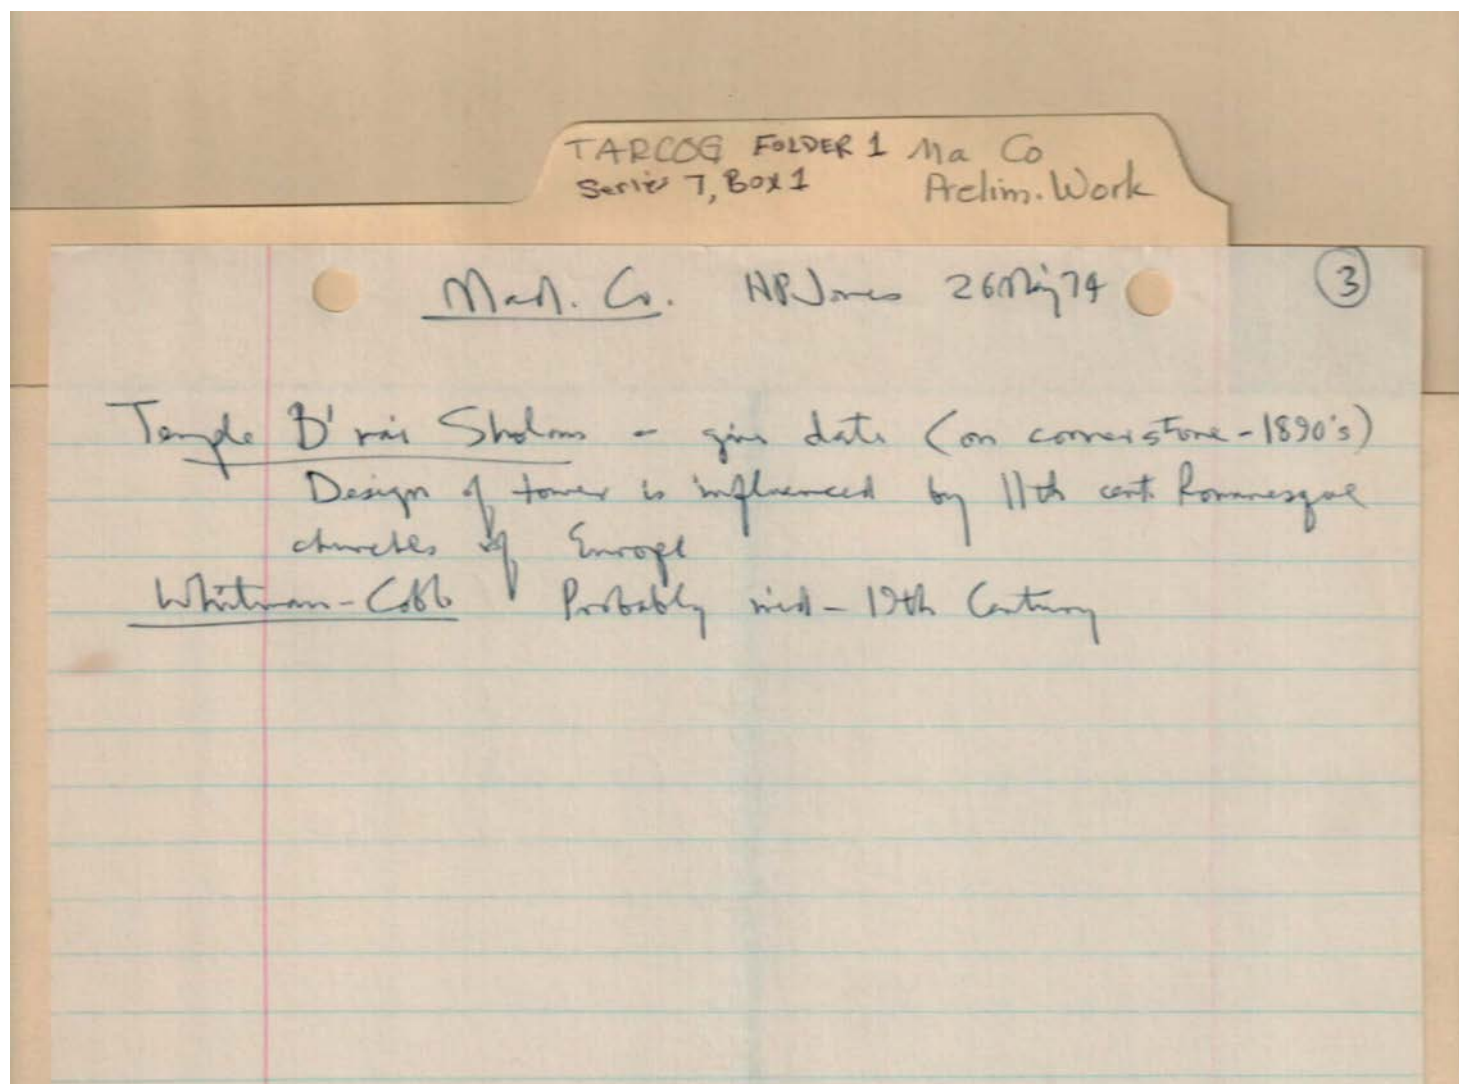 TARCOG FOLDER 1 Ma Co
Series 7, Box 1 Prelim. Work
Mad. Co. HP Jones 26 May 74 3
Temple B'nai Sholom - give date (on cornerstone - 1890's)
Design of tower is influenced by 11th cent. Romanesque
churches of Europe
Whitman-Cobb Probably mid-19th Century